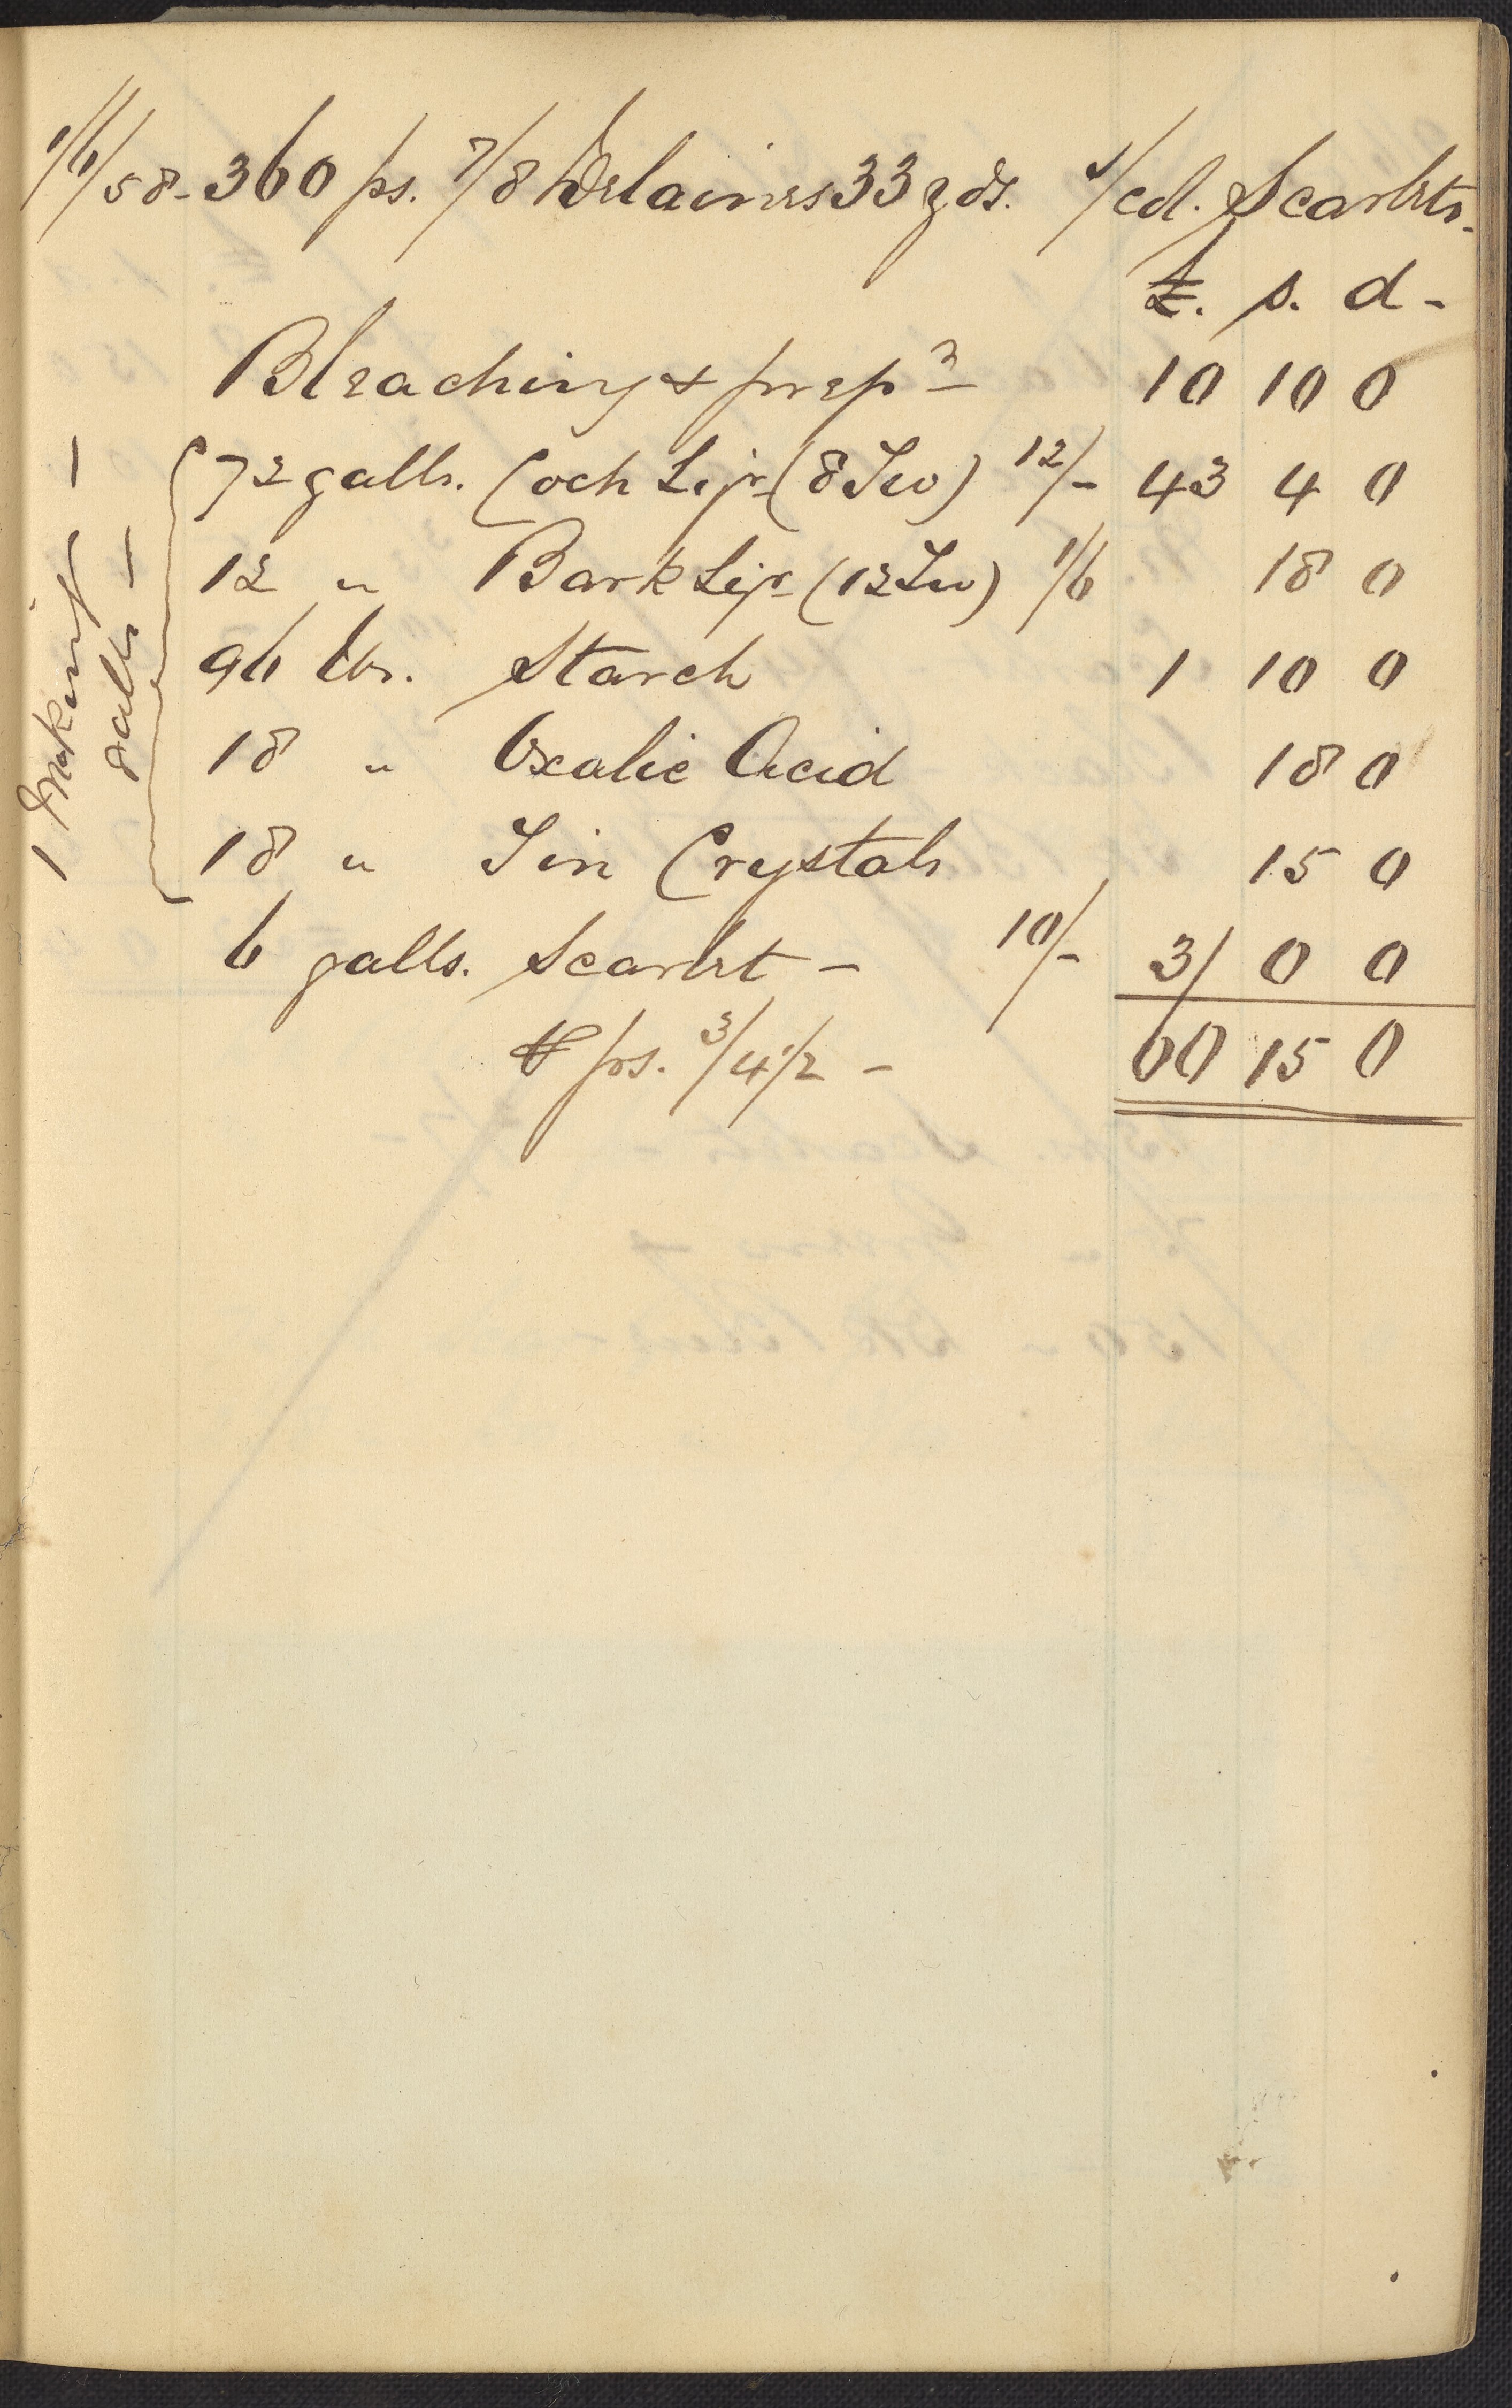 1/6/58 - 360 ps. 7/8 Delaines 33 yds. 1/col. Scarlets -
£. s. d -
Bleaching & prepn 10 10 0
72 galls. Coch Liqr (8 Tw) 12/- 43 4 0
12 " Bark Liqr (12 Tw) 1/6 18 0
96 lbs. Starch 1 10 0
18 " Oxalic Acid 18 0
18 " Tin Crystals 15 0
6 galls. Scarlet - 10/- 3/ 0 0
ps. 3/4 1/2 - 60 15 0
1 Making -
galls -